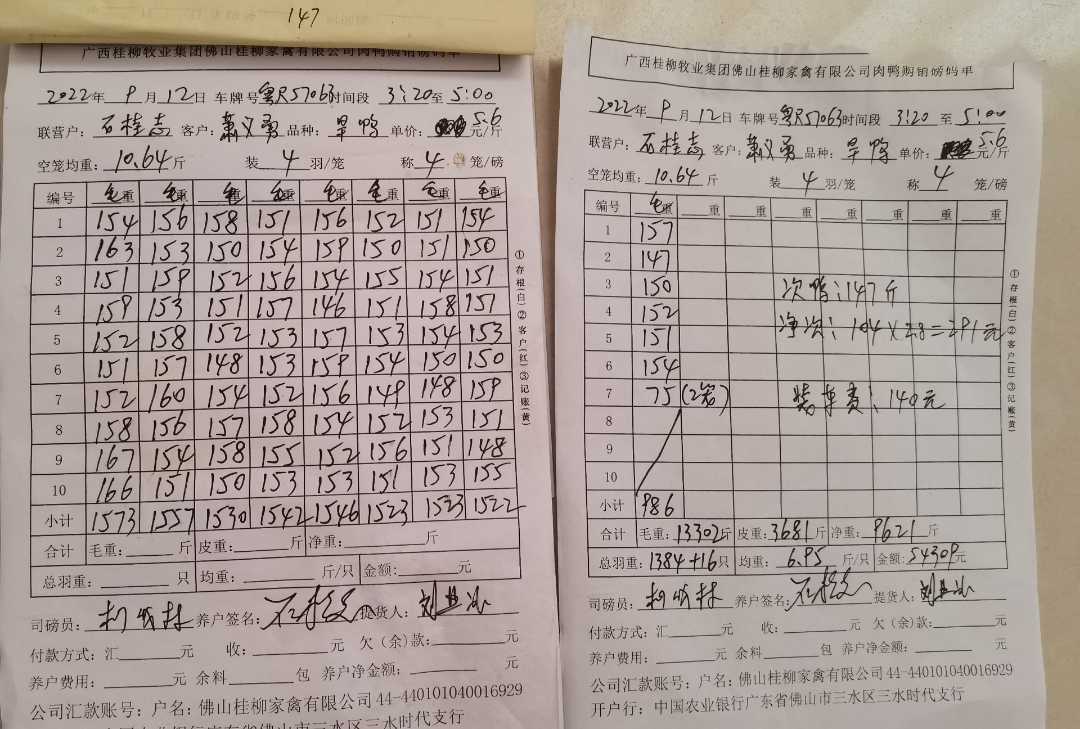 147
广西桂柳牧业集团佛山桂柳家禽有限公司肉鸭购销磅码单
2022年 9月12日 车牌号粤R57063时间段 3:20至5:00
联营户: 石桂志 客户: 萧义勇 品种: 旱鸭 单价: 5.6元/斤
空笼均重: 10.64斤 装 4 羽/笼 称 4 笼/磅
编号 毛重 毛重 毛重 毛重 毛重 毛重 毛重 毛重
1 154 156 158 151 156 152 151 154
2 163 153 150 154 159 150 151 150
3 151 159 152 156 154 155 154 151
4 159 153 151 157 146 151 158 151
5 152 158 152 153 157 153 154 153
6 151 157 148 153 159 154 150 150
7 152 160 154 152 156 149 148 159
8 158 156 157 158 154 152 153 151
9 167 154 158 155 152 156 151 148
10 166 151 150 153 153 151 153 155
小计 1573 1557 1530 1542 1546 1523 1523 1522
合计 毛重: 斤 皮重: 斤 净重: 斤
总羽重: 只 均重: 斤/只 金额: 元
司磅员: 养户签名: 提货人:
付款方式: 汇 元 收: 元 欠(余)款: 元
养户费用: 元 余料 包 养户净金额: 元
公司汇款账号: 户名: 佛山桂柳家禽有限公司 44-440101040016929
中国农业银行广东省佛山市三水区三水时代支行
①存根(白)②客户(红)③记账(黄)
广西桂柳牧业集团佛山桂柳家禽有限公司肉鸭购销磅码单
2022年 9月12日 车牌号粤R57063时间段 3:20 至 5:00
联营户: 石桂志 客户: 萧义勇 品种: 旱鸭 单价: 5.6元/斤
空笼均重: 10.64 斤 装 4 羽/笼 称 4 笼/磅
编号 毛重 重 重 重 重 重 重 重
1 157
2 147
3 150 次鸭:147斤
4 152
5 151 净次: 104×2.8=291元
6 154
7 75(2笼) 装车费: 140元
8
9
10
小计 986
合计 毛重: 13302斤 皮重: 3681斤 净重: 9621斤
总羽重: 1384+16只 均重: 6.95 斤/只 金额: 54309元
司磅员: 养户签名: 提货人:
付款方式: 汇 元 收: 元 欠(余)款: 元
养户费用: 元 余料 包 养户净金额: 元
公司汇款账号: 户名: 佛山桂柳家禽有限公司 44-440101040016929
开户行: 中国农业银行广东省佛山市三水区三水时代支行
①存根(白)②客户(红)③记账(黄)